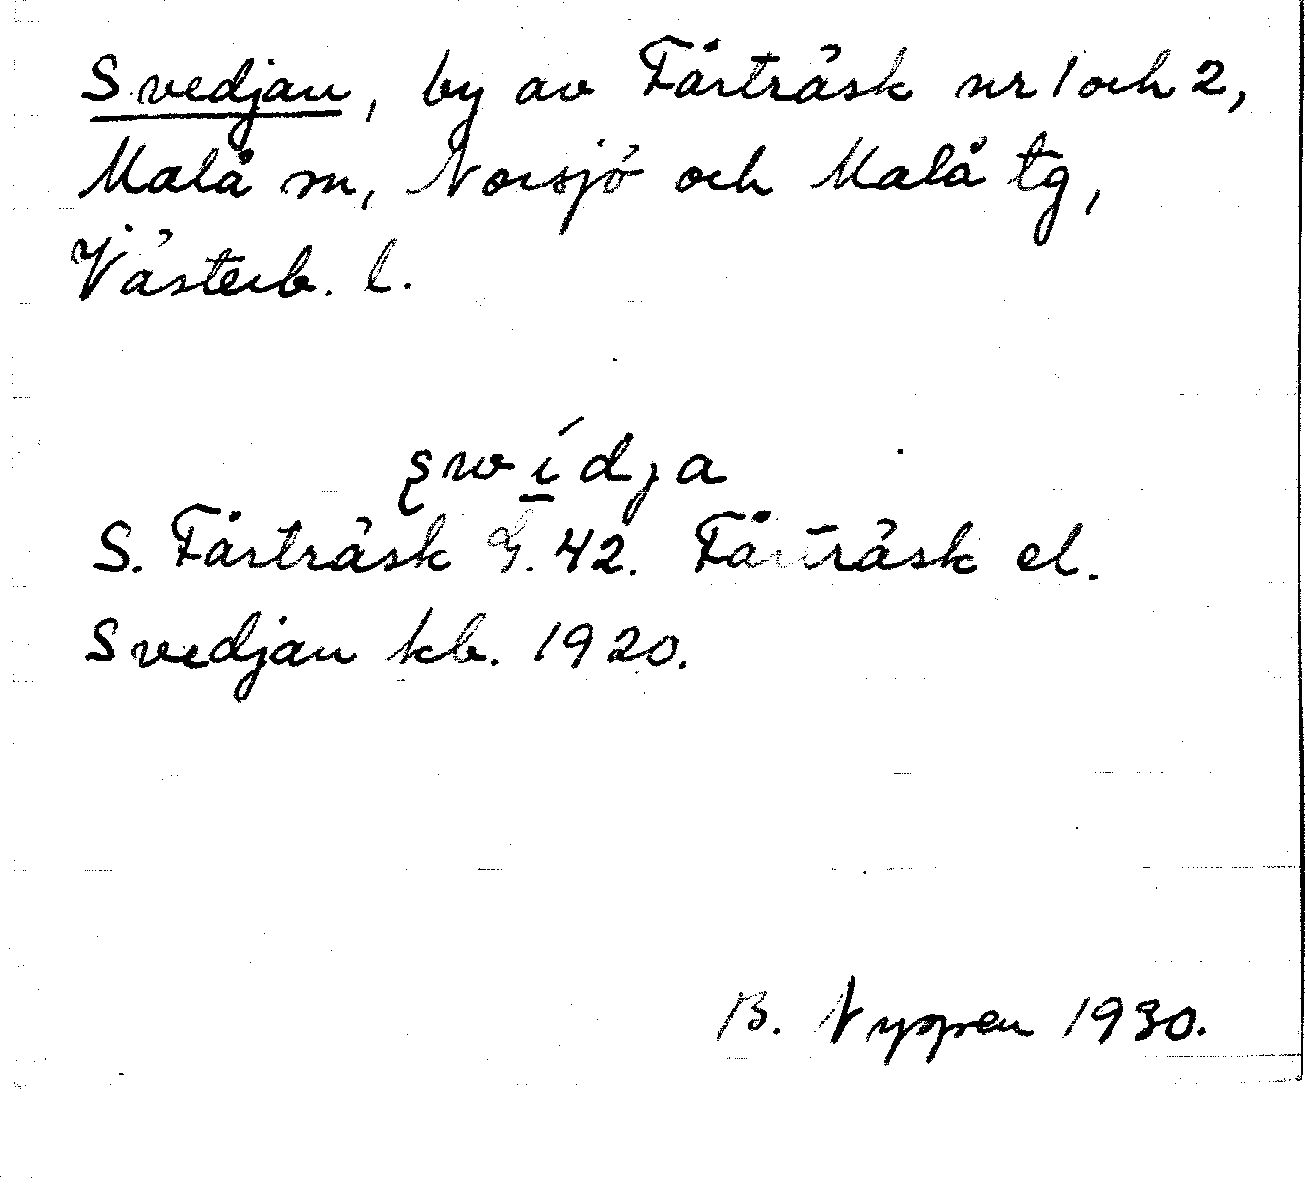 Svedjan, by av Fårträsk nr 1 och 2,
Malå sn, Norsjö och Malå tg,
Västerb. l.
swí̲dja
S. Fårträsk G. 42. Fårträsk el.
Svedjan kb. 1920.
B. 1930.